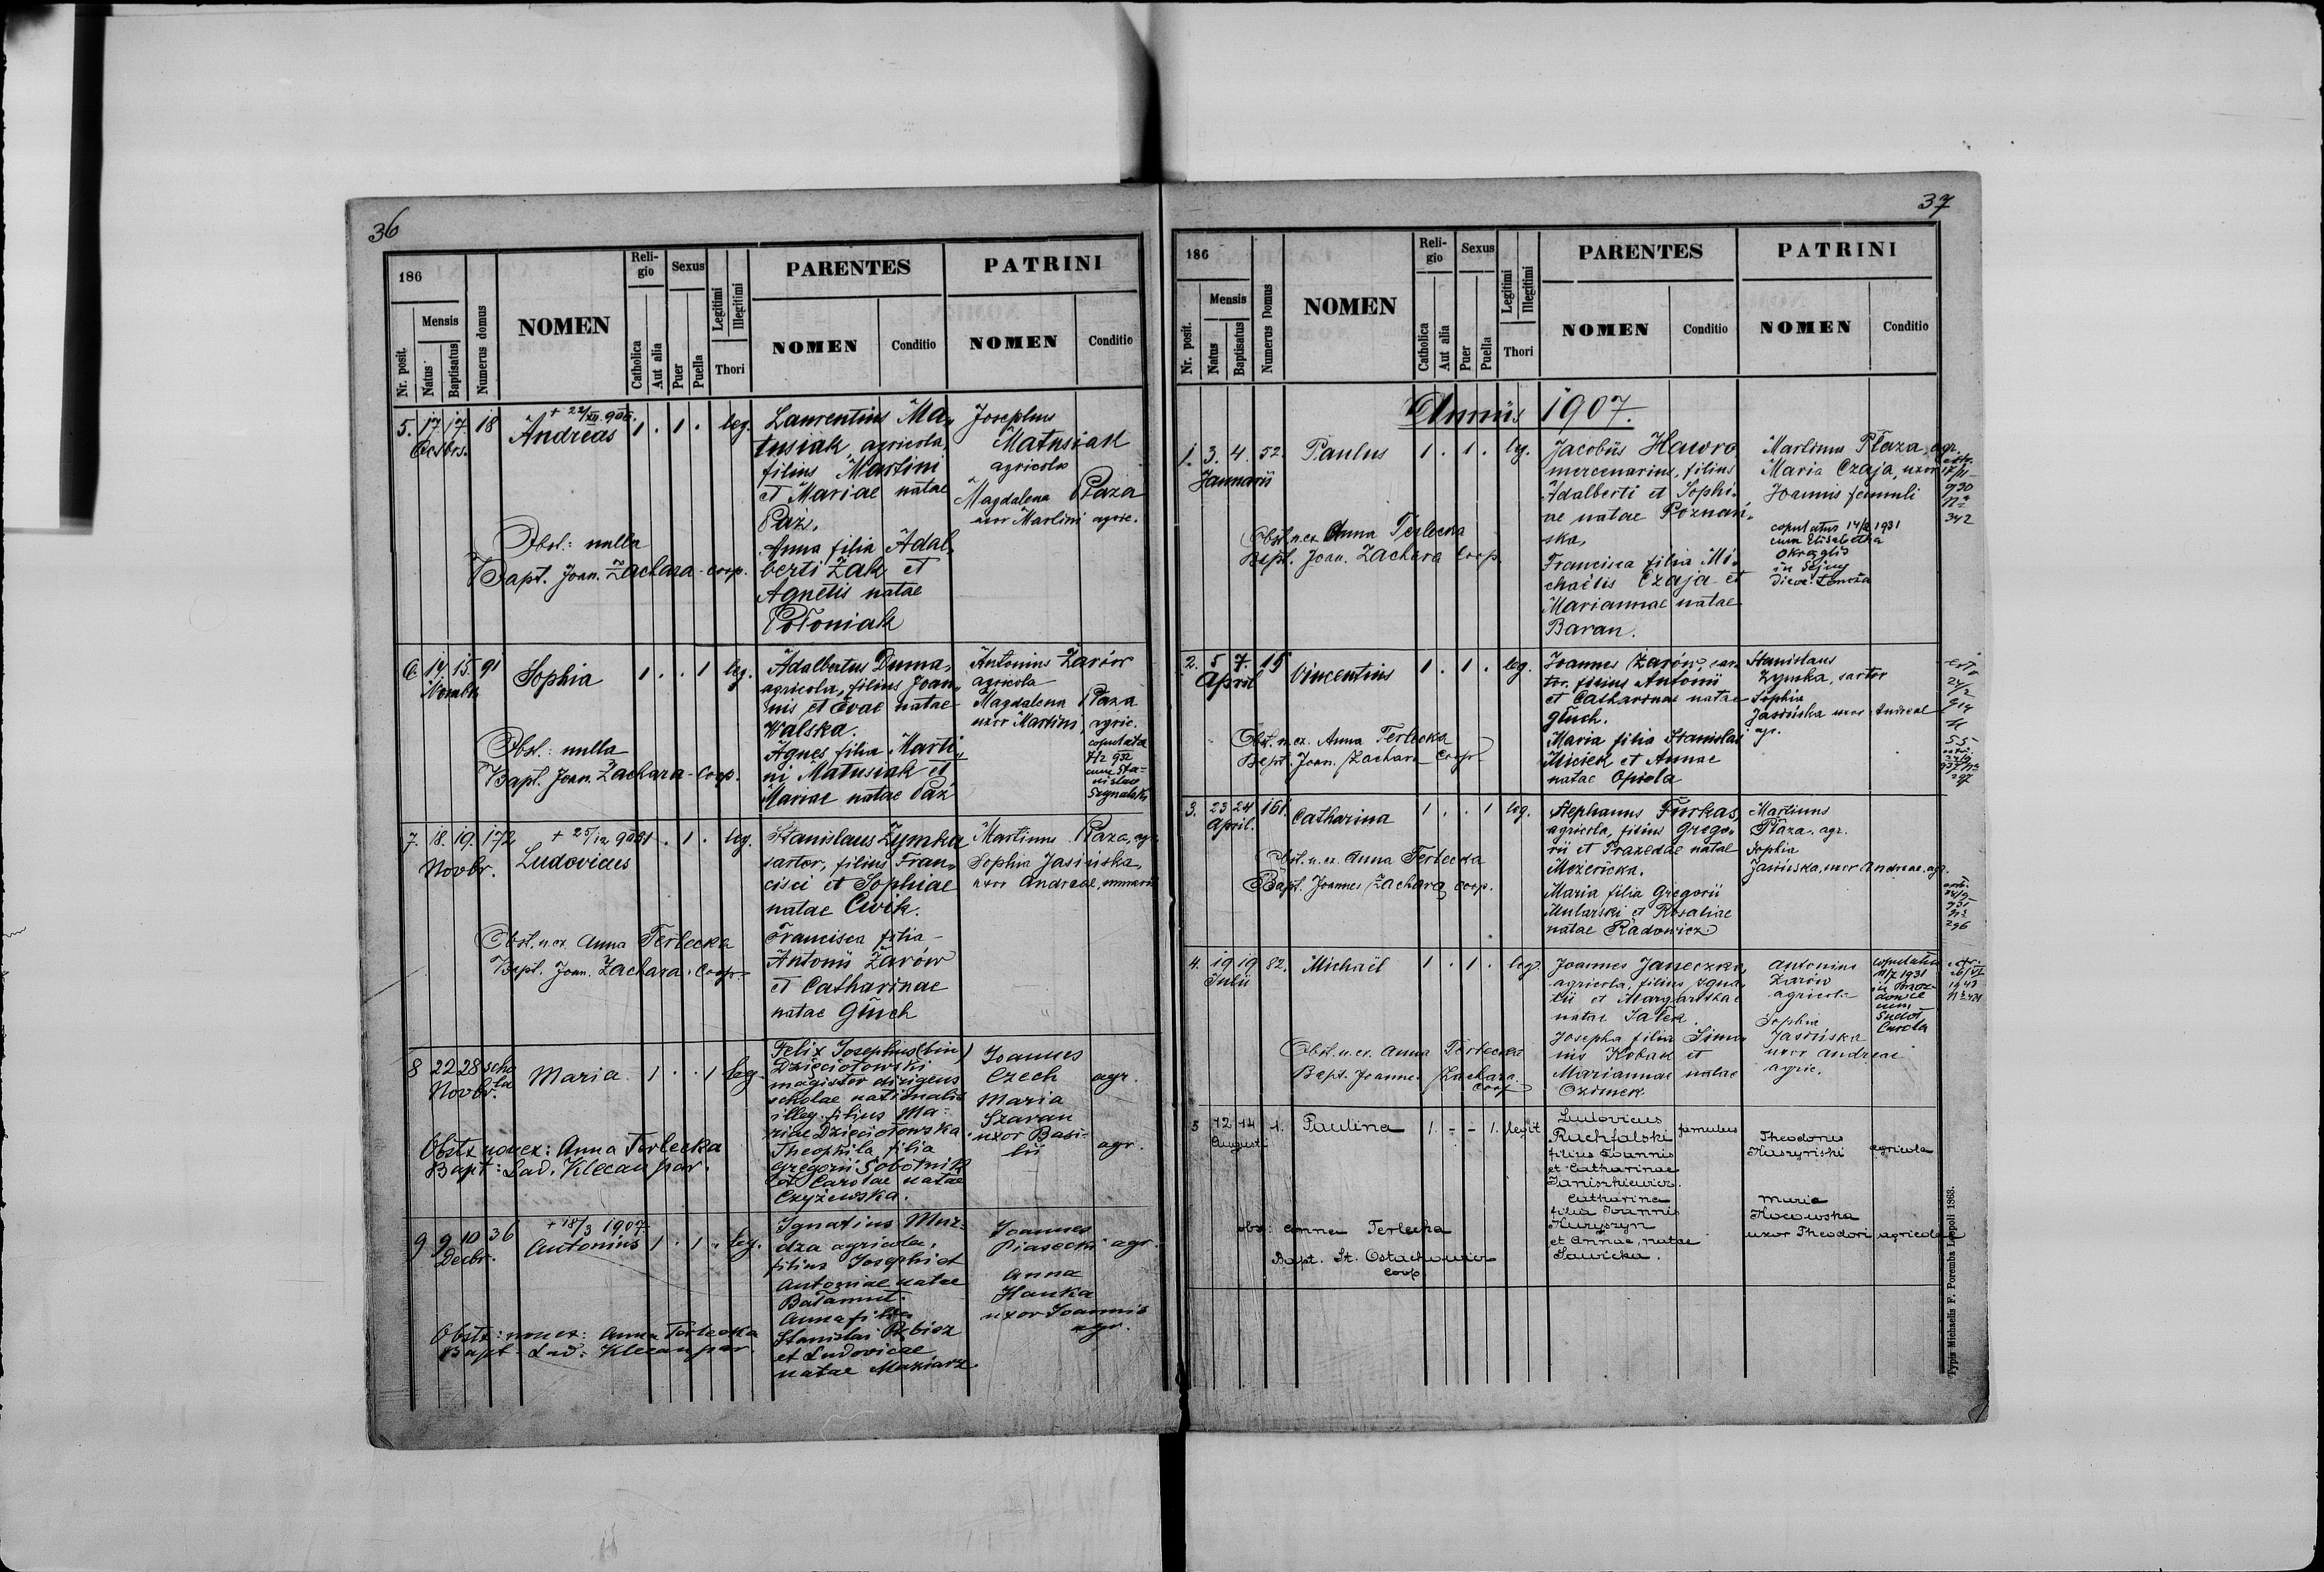 36
186
Reli-
gio
Sexus
PARENTES
PATRINI
Nr. posit.
Mensis
Natus
Baptisatus
Numerus domus
NOMEN
Catholica
Aut alia
Puer
Puella
Legitimi
Illegitimi
Thori
NOMEN
Conditio
NOMEN
Conditio
5. 17. 17. 18
Octbris.
+ 22/XII 906.
Andreas
1 . 1 . leg.
Laurentius Ma-
tusiak, agricola,
filius Martini
et Mariae natae
Paź.
Anna filia Adal-
berti Żak et
Agnetis natae
Połoniak
Josephus
Matusiak
agricola
Magdalena Płaza
uxor Martini agric.
Obst.: nulla
Bapt. Joan. Zachara - coop.
6. 14. 15. 91
Novembr.
Sophia
1 . . 1 leg.
Adalbertus Duma,
agricola, filius Joan-
nis et Evae natae
Walska.
Agnes, filia Marti-
ni Matusiak et
Mariae natae Paź
Antonius Żarów
agricola
Magdalena Płaza
uxor Martini, agric.
copulata
7/2 932
cum Sta-
nislao
Obst.: nulla
Bapt. Joan. Zachara - Coop.
7. 18. 19. 172
Novbr.
+ 25/12 908
Ludovicus
1 . 1 . leg.
Stanislaus Zymka
sartor, filius Fran-
cisci et Sophiae
natae Cwik.
Francisca filia
Antonii Żarów
et Catharinae
natae Głuch
Martinus Płaza, agr.
Sophia Jasińska,
uxor Andreae
Obst. n. ex. Anna Terlecka
Bapt. Joan. Zachara, Coop.
8 22 28 scho
la
Novbr.
Maria
1 . . 1 leg.
Felix Josephus (bin)
Dzięciołowski
magister dirigens
scholae nationalis
illeg. filius Ma-
riae Dzięciołowska
Theophila, filia
Gregorii Sobotnik
et Carolae natae
Czyżewska.
Joannes
Czech agr.
Maria
Szaran
uxor Basi-
lii agr.
Obstx non ex: Anna Terlecka
Bapt: Lad. Klecan par.
9 9 10 36
Decbr.
+ 18/3 1907
Antonius
1 . 1 . leg.
Ignatius Mar-
dza agricola,
filius Josephi et
Antoniae natae
Bałamut.
Anna filia
Stanislai Rębisz
et Ludovicae
natae Maziarz
Joannes
Piasecki agr.
Anna
Hanka
uxor Joannis
agr.
Obstx: non ex: Anna Terlecka
Bapt - Lad: Klecan par.
37
186
Reli-
gio
Sexus
PARENTES
PATRINI
Nr. posit.
Mensis
Natus
Baptisatus
Numerus Domus
NOMEN
Catholica
Aut alia
Puer
Puella
Legitimi
Illegitimi
Thori
NOMEN
Conditio
NOMEN
Conditio
Annus 1907.
1. 3. 4. 52.
Januarii
Paulus
1 . 1 . leg.
Jacobus Hawro
mercenarius, filius
Adalberti et Sophi-
ae natae Poznań-
ska,
Francisca filia Mi-
chaëlis Czaja et
Mariannae natae
Baran.
Martinus Płaza, agr.
Maria Czaja, uxor
Joannis famuli
copulatus 14/2 1931
cum Elisabetha
Okrąglis
in Sejny
Diec. Łomża
930
Nº
342
Obst. n. ex. Anna Terlecka
Bapt. Joan. Zachara Coop.
2. 5 7. 15
April
Vincentius
1 . 1 . leg.
Joannes Żarów, sar-
tor, filius Antonii
et Catharinae natae
Głuch.
Maria filia Stanislai
Misiek et Annae
natae Opiela
Stanislaus
Zymka, sartor
Sophia
Jasińska uxor Andreae
agr.
24/2
55
297
Obst. n. ex. Anna Terlecka
Bapt. Joan. Zachara Coop.
3. 23 24 161.
April.
Catharina
1 . . 1 leg.
Stephanus Furkas,
agricola, filius Grego-
rii et Praxedae natae
Maria filia Gregorii
Mularski et Rosaliae
natae Radowicz
Martinus
Płaza, agr.
Sophia
Jasińska, uxor Andreae, agr.
296
Obst. n. ex. Anna Terlecka
Bapt. Joannes Zachara coop.
4. 19 19 82.
Julii
Michaël
1 . 1 . leg.
Joannes Janeczko,
agricola, filius Igna-
tii et Margarithae
natae Sałek.
Josepha filia Simo-
nis Kobak et
Mariannae natae
Ozimek.
Antonius
Żarów
agricola
Sophia
Jasińska
uxor Andreae
agric.
copulatus
11/7 1931
cum
Carola
Obst. n. ex. Anna Terlecka
Bapt. Joannes Zachara
Coop
5 12 14 1.
Augusti
Paulina
1. - - 1. legit
Ludovicus
Ruchfalski famulus
filius Joannis
et Catharinae
Janiszkiewicz.
Catharina
filia Joannis
Huryszyn
et Annae, natae
Sawicka.
Theodorus
Huszyński agricola
Maria
uxor Theodori agricolae
obs: Anna Terlecka
Bapt. St. Ostachowicz
Coop.
Typis Michaelis F. Poremba Leopoli 1863.